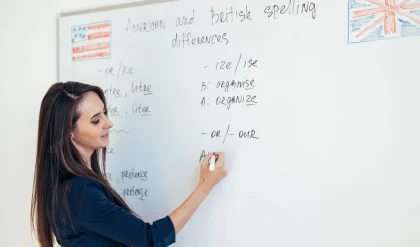 American and British spelling
differences
- er/re
litre
liter
- ize/ise
B: organise
A: organize
- or/-our
A